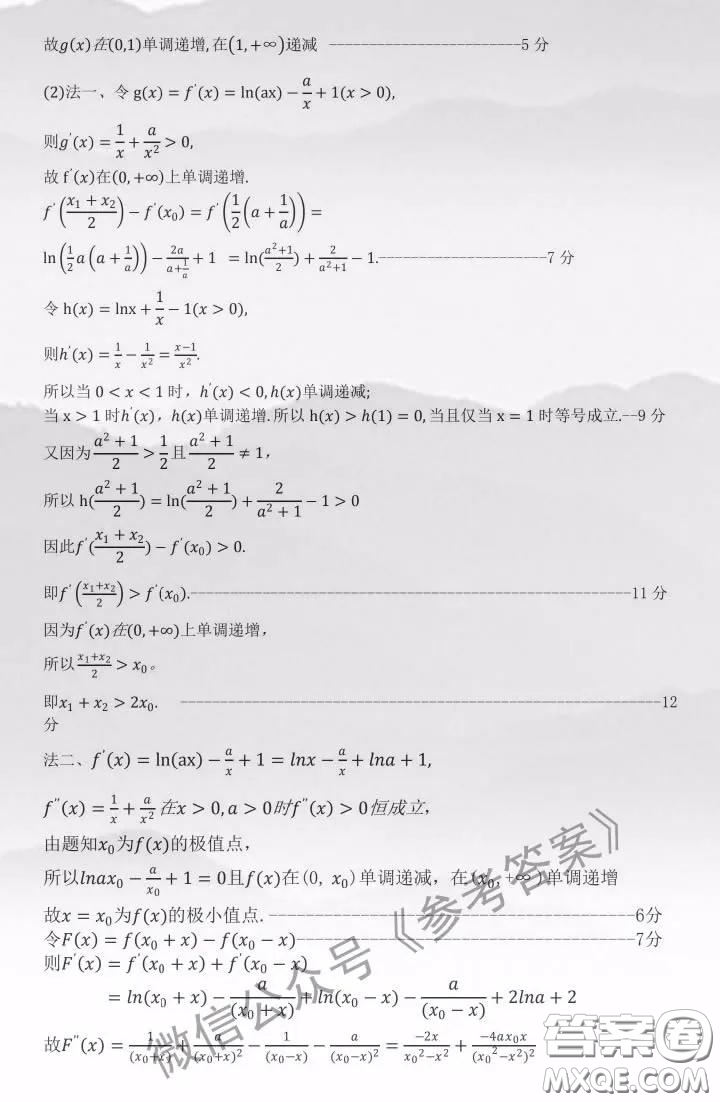 故g(x)在(0,1)单调递增,在(1,+∞)递减 ------------------------5 分
(2)法一、令 g(x) = f'(x) = ln(ax) − a/x + 1(x > 0),
则g'(x) = 1/x + a/x² > 0,
故 f'(x)在(0,+∞)上单调递增.
f'((x₁ + x₂)/2) − f'(x₀) = f'(1/2(a + 1/a)) =
ln(1/2 a(a + 1/a)) − 2a/(a + 1/a) + 1 = ln((a²+1)/2) + 2/(a²+1) − 1.---------------------7 分
令 h(x) = lnx + 1/x − 1(x > 0),
则h'(x) = 1/x − 1/x² = (x−1)/x².
所以当 0 < x < 1 时，h'(x) < 0, h(x)单调递减;
当 x > 1 时h'(x)，h(x)单调递增.所以 h(x) > h(1) = 0,当且仅当 x = 1 时等号成立.--9 分
又因为(a² + 1)/2 > 1/2 且 (a² + 1)/2 ≠ 1，
所以 h((a² + 1)/2) = ln((a² + 1)/2) + 2/(a² + 1) − 1 > 0
因此f'((x₁ + x₂)/2) − f'(x₀) > 0.
即f'((x₁+x₂)/2) > f'(x₀).-------------------------------------------------------11 分
因为f'(x)在(0,+∞)上单调递增，
所以(x₁+x₂)/2 > x₀。
即x₁ + x₂ > 2x₀. ------------------------------------------------------------12
分
法二、f'(x) = ln(ax) − a/x + 1 = lnx − a/x + lna + 1,
f''(x) = 1/x + a/x² 在x > 0, a > 0时f''(x) > 0恒成立，
由题知x₀为f(x)的极值点，
所以lnax₀ − a/x₀ + 1 = 0且f(x)在(0, x₀)单调递减，在(x₀,+∞)单调递增
故x = x₀为f(x)的极小值点.----------------------------------------------6分
令F(x) = f(x₀ + x) − f(x₀ − x)------------------------------------------7分
则F'(x) = f'(x₀ + x) + f'(x₀ − x)
= ln(x₀ + x) − a/(x₀ + x) + ln(x₀ − x) − a/(x₀ − x) + 2lna + 2
故F''(x) = 1/(x₀+x) + a/(x₀+x)² − 1/(x₀−x) − a/(x₀−x)² = −2x/(x₀²−x²) + −4ax₀x/(x₀²−x²)²
微信公众号《参考答案》
答案圈
MXQE.COM